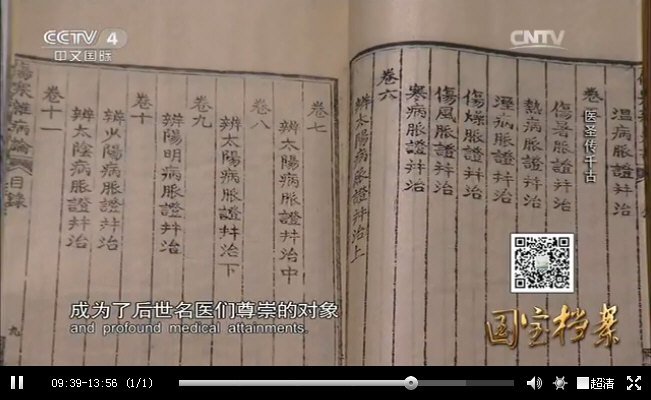 CCTV 4
中文国际
CNTV
医圣传千古
温病脈證并治
卷
傷暑脈證并治
熱病脈證并治
溼病脈證并治
傷燥脈證并治
傷風脈證并治
寒病脈證并治
卷六
辨太陽病脈證并治上
卷七
辨太陽病脈證并治中
卷八
辨太陽病脈證并治下
卷九
辨陽明病脈證并治
卷十
辨少陽病脈證并治
辨太陰病脈證并治
卷十一
傷寒雜病論
目錄
九
成为了后世名医们尊崇的对象
and profound medical attainments.
国宝档案
09:39-13:56 (1/1)
超清